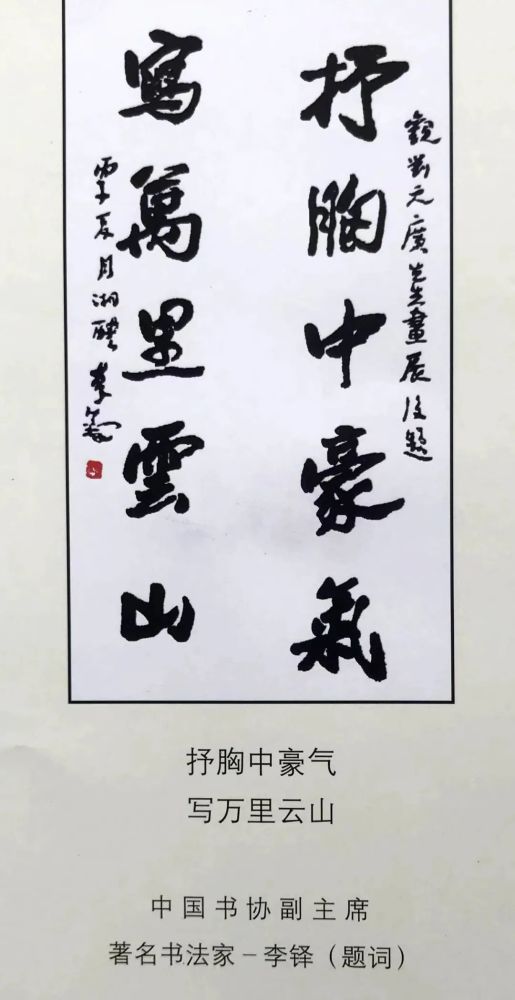 觀劉元廣先生畫展後題
抒胸中豪氣
寫萬里雲山
夏月湘醴李鐸
抒胸中豪气
写万里云山
中国书协副主席
著名书法家－李铎（题词）